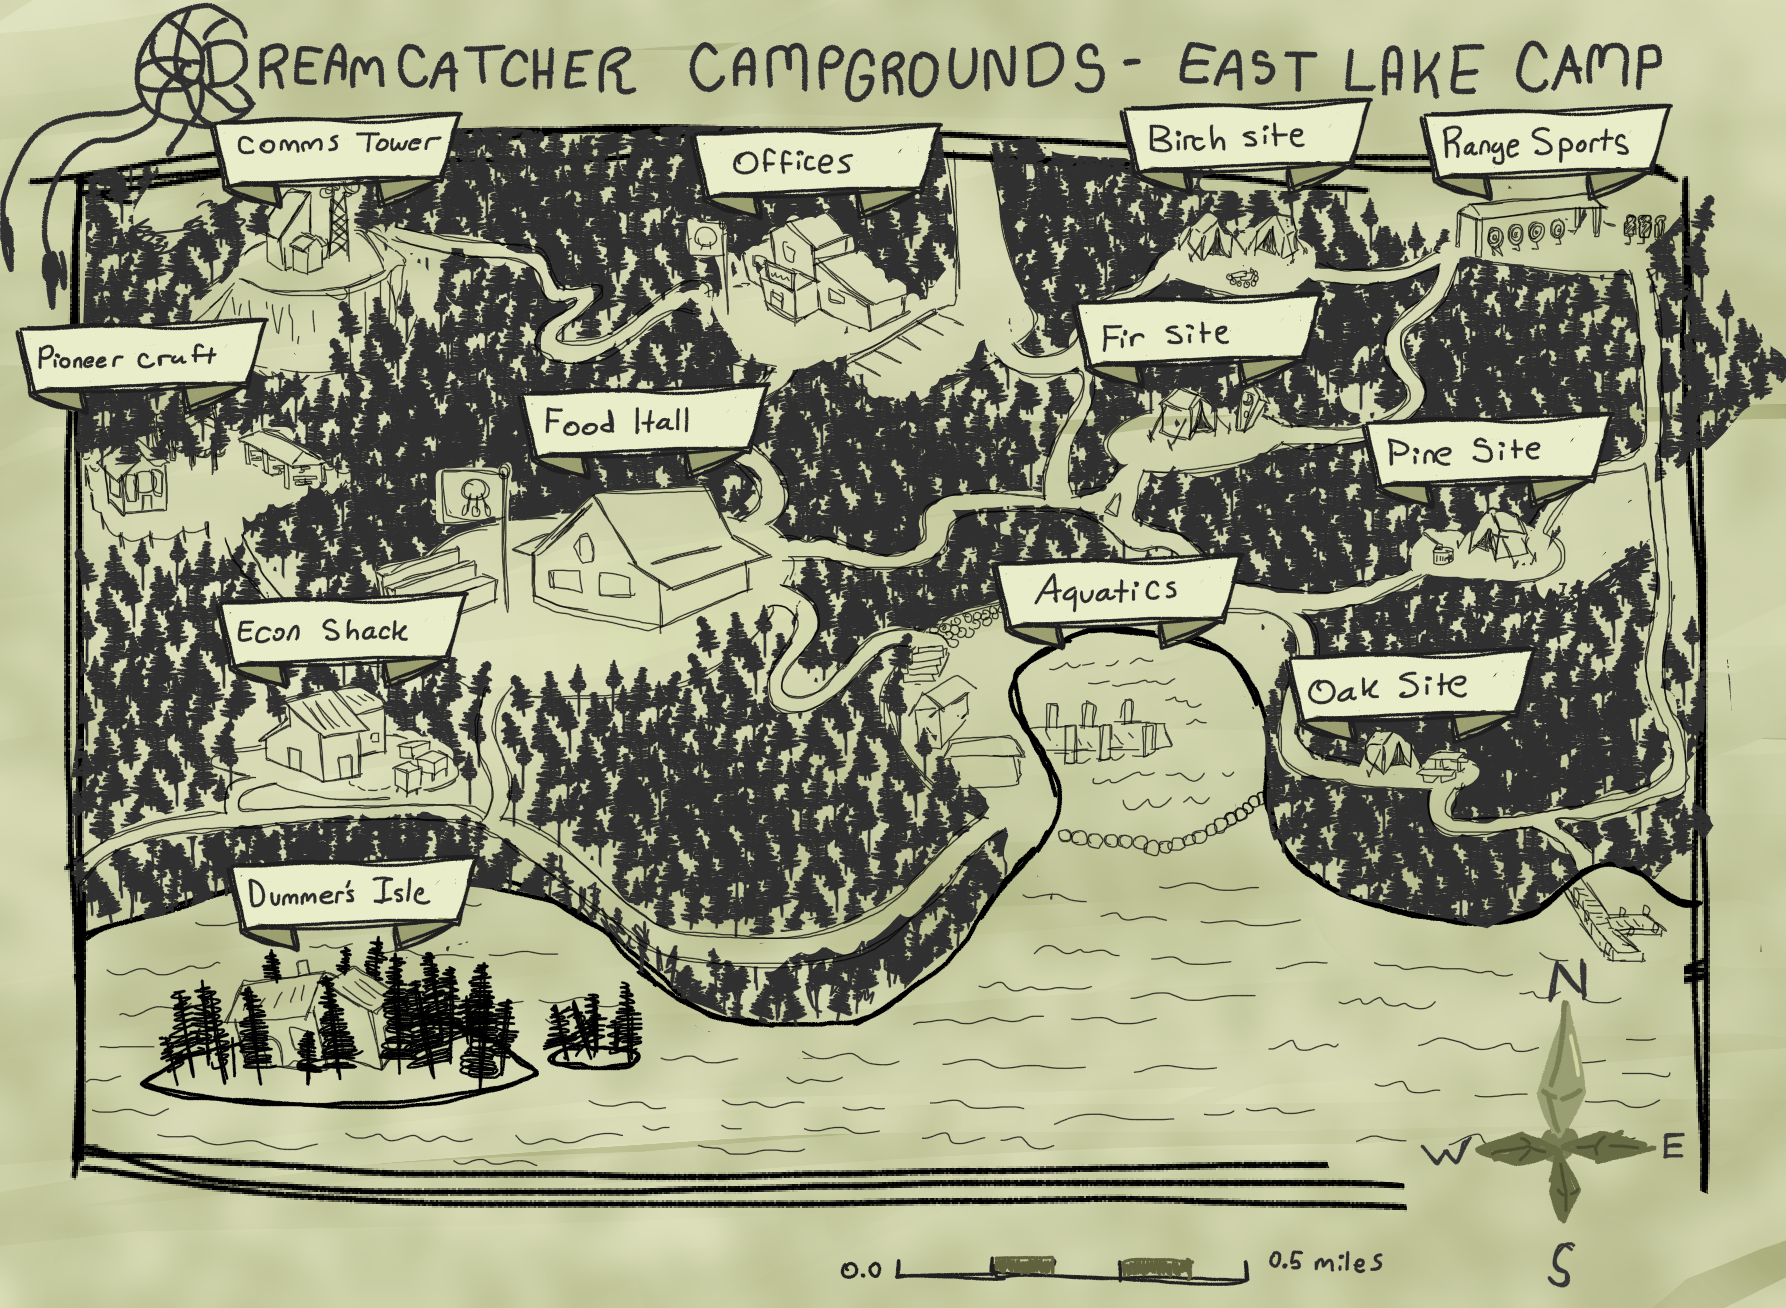 DREAMCATCHER CAMPGROUNDS - EAST LAKE CAMP
Comms Tower
Offices
Birch site
Range Sports
Pioneer craft
Fir Site
Food Hall
Pine Site
Aquatics
Econ Shack
Oak Site
Dummer's Isle
N
W
E
S
0.0
0.5 miles